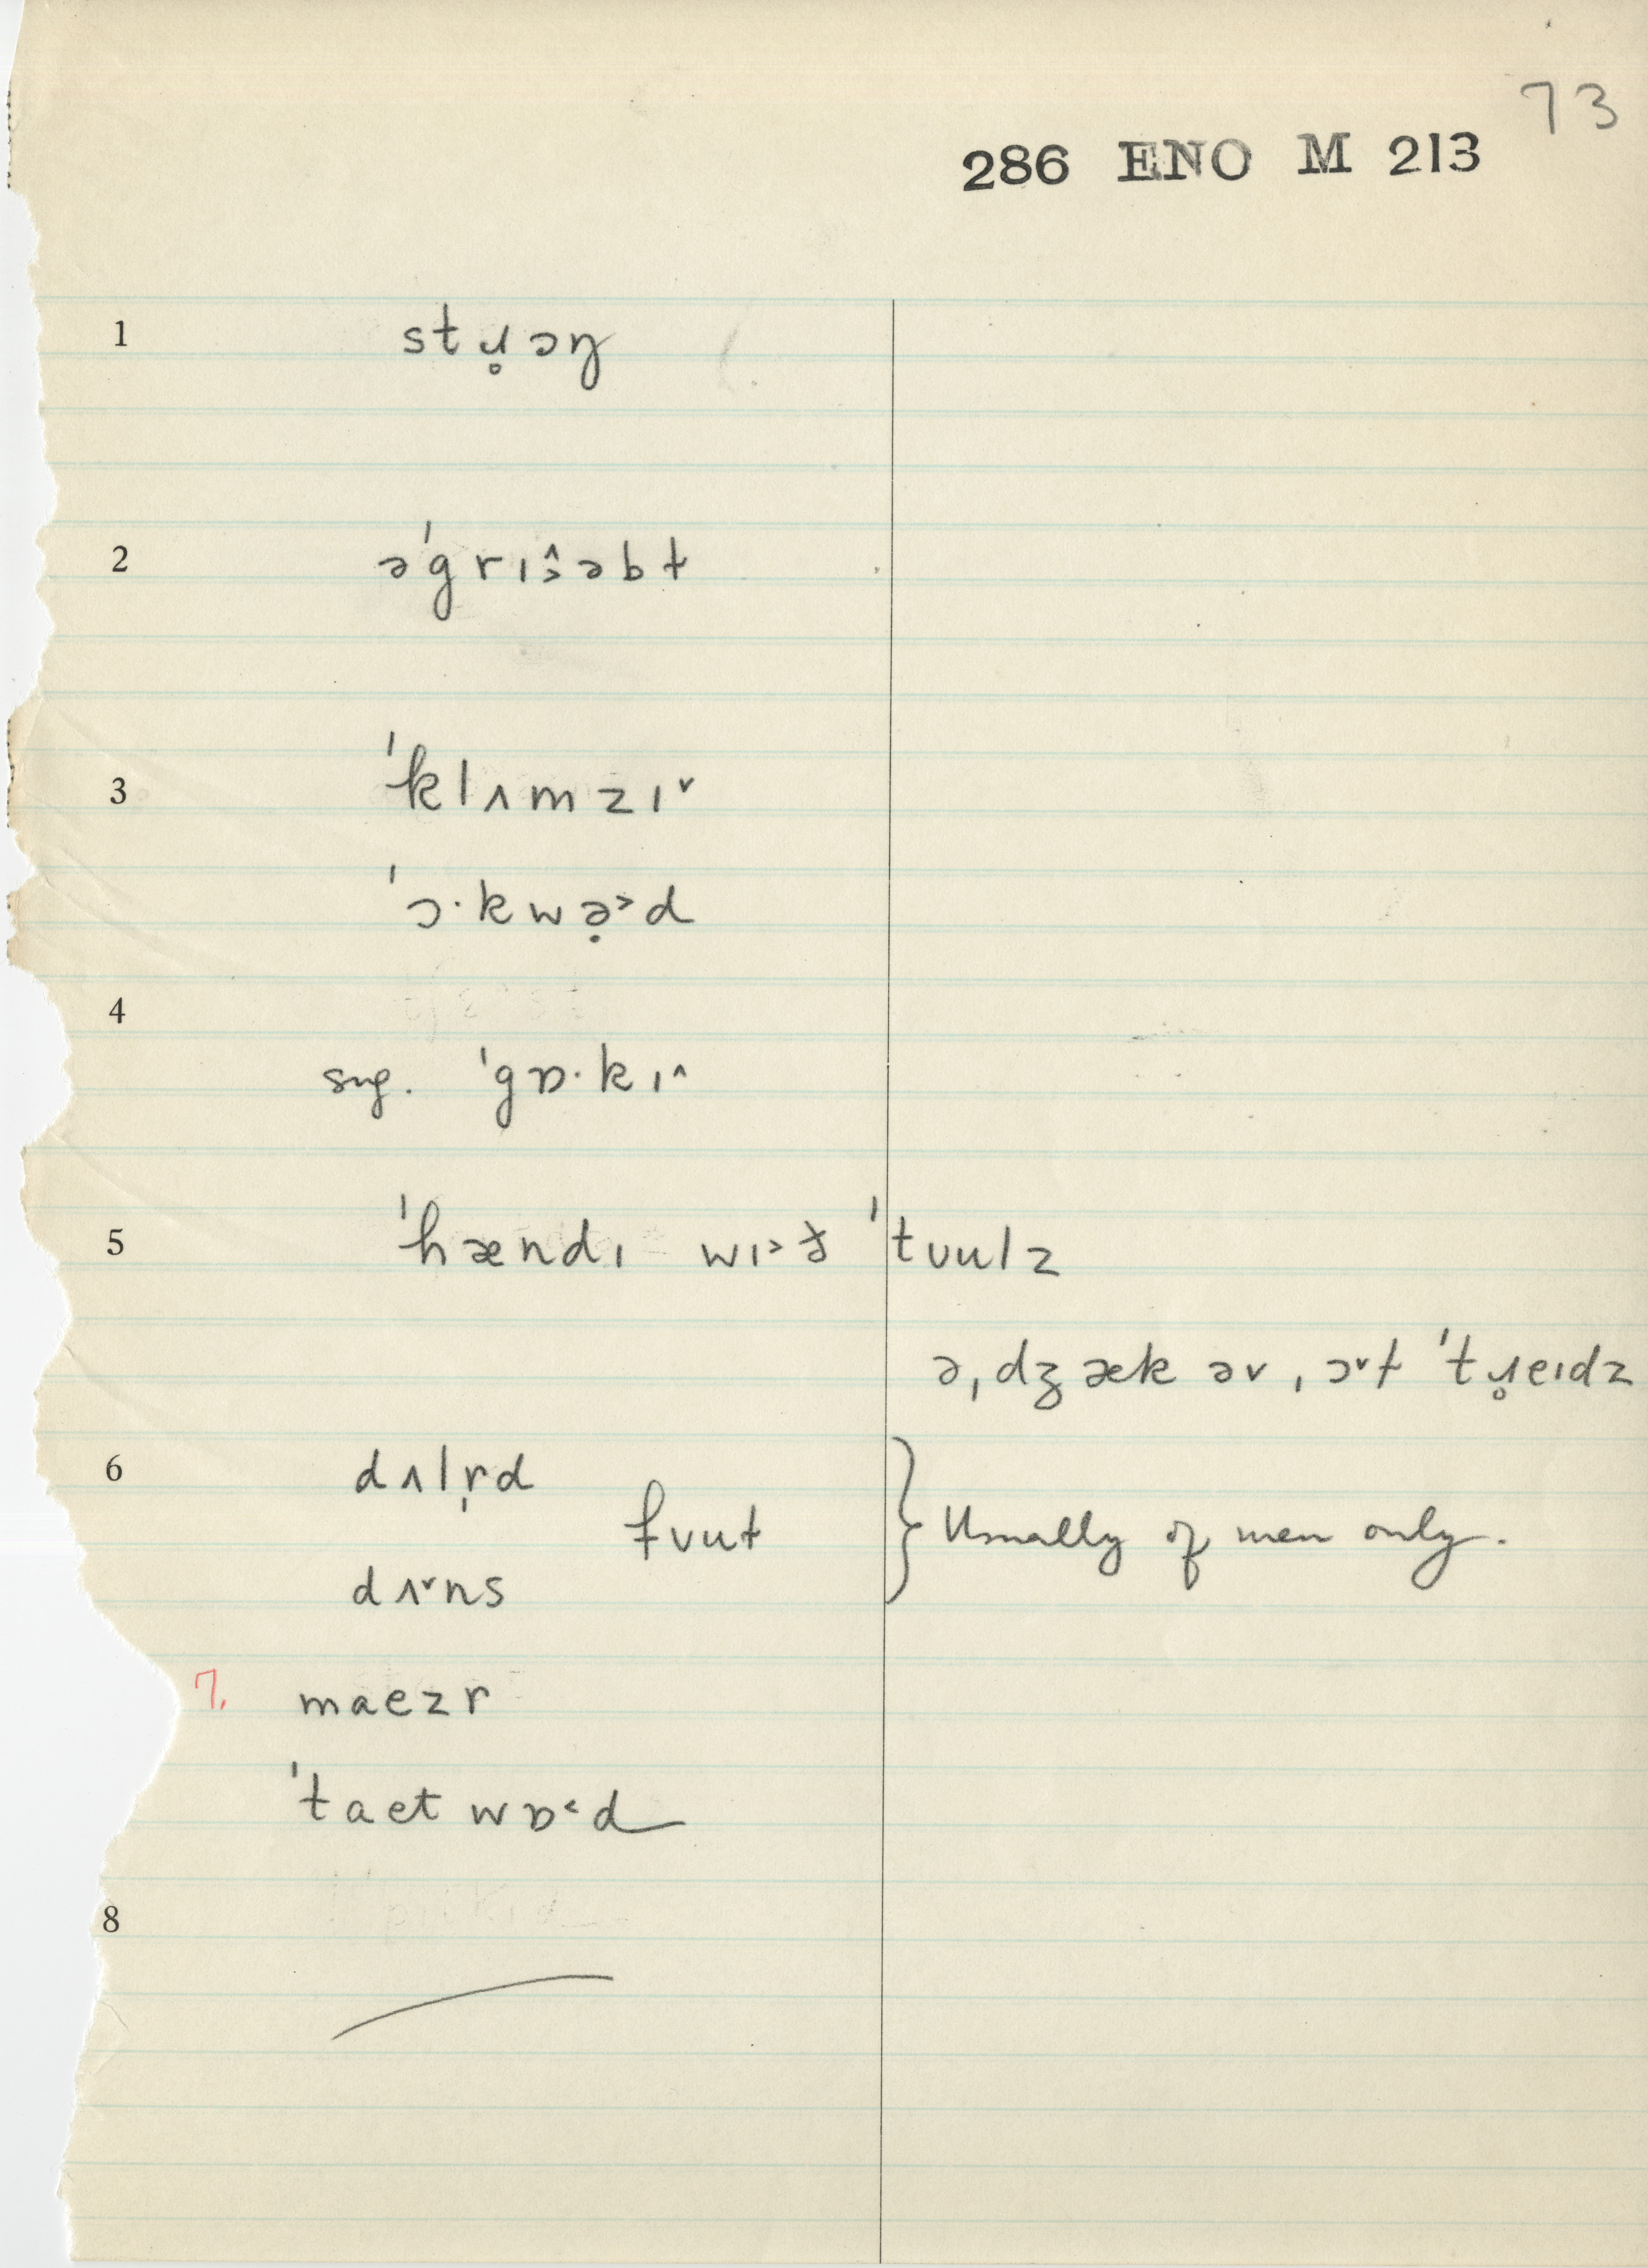 73
286 ENO M 213
1 stɹ̥ɔŋ
2 ə'grɪ^˃əbɫ
3 'klʌmzɪ˅
'ɔ·kwə̣˃d
4
sng. 'gɒ·kɪ^
5 'hændɪ wɪ˃ð 'tʊulz
ə,dʒæk əv ,ɔ˅ɫ 'tɹ̥eɪdz
6 dʌlr̩d
fʊuɫ } Usually of men only.
dʌ˅ns
7. maezr
'taetwɒ˂d
8